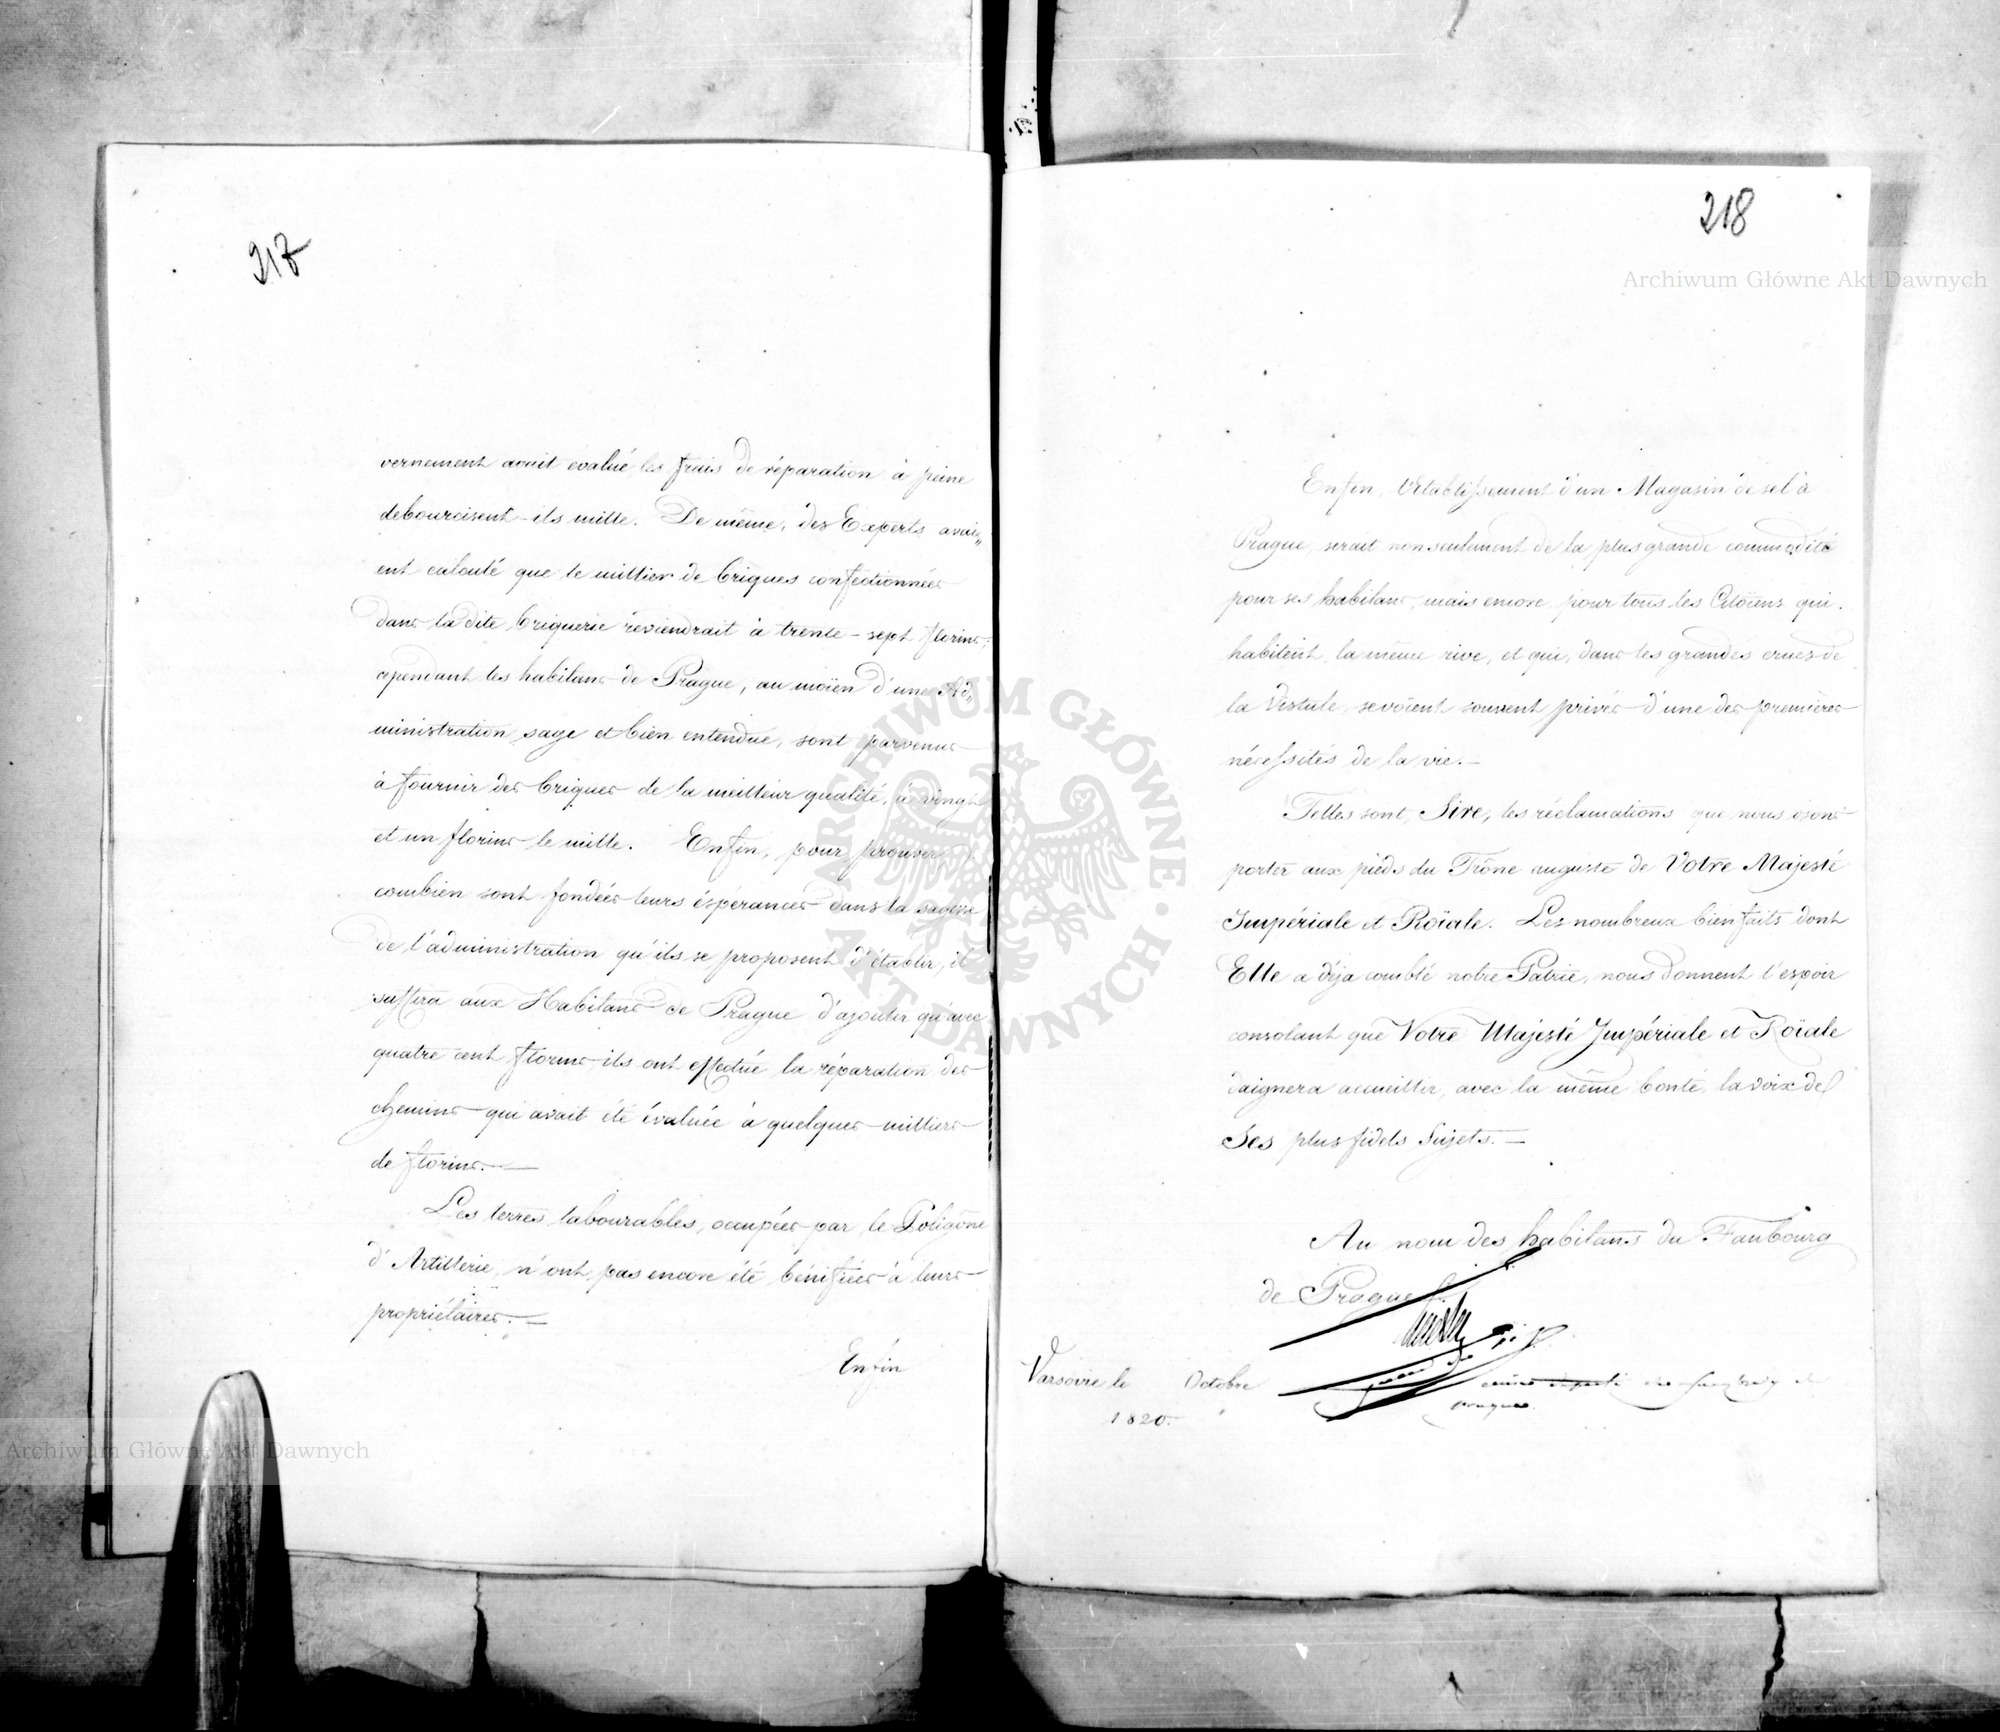 217
vernement avait evalué les frais de réparation à peine
debourcisent-ils mille. De même, des Experts avai„
ent calculé que le millier de briques confectionnées
dans la dite briquerie réviendrait à trente-sept florins;
cependant les habitans de Prague, au moïen d'une Ad„
ministration sage et bien entendue, sont parvenus
à fournir des briques de la meilleur qualité, à vingt
et un florins le mille. Enfin, pour prouver
combien sont fondées leurs éspérances dans la sagesse
de l'administration qu'ils se proposent d'établir, il
suffira aux Habitans de Prague d'ajouter qu'avec
quatre cent florins, ils ont effectué la réparation des
chemins qui avait été évaluée à quelques milliers
de florins.—
Les terres labourables, occupées par le Poligone
d'Artillerie, n'ont pas encore été bénifiées à leurs
propriétaires.—
Enfin
218
Enfin, l'Etablissement d'un Magasin de sel à
Prague, serait non seulement de la plus grande commodité
pour ses habitans, mais encore pour tous les Citoïens qui
habitent la même rive, et qui, dans les grandes crues de
la Vistule, se voïent souvent privés d'une des premières
nécessités de la vie.—
Telles sont, Sire, les réclamations que nous osons
porter aux pieds du Trône auguste de Votre Majesté
Impériale et Roïale. Les nombreux bienfaits dont
Elle a déja comblé notre Patrie, nous donnent l'espoir
consolant que Votre Majesté Impériale et Roïale
daignera accueillir, avec la même bonté, la voix de
Ses plus fidels Sujets.—
Au nom des habitans du Faubourg
de Prague
Varsovie le Octobre
1820.
Archiwum Główne Akt Dawnych
Archiwum Główne Akt Dawnych
ARCHIWUM GŁÓWNE AKT DAWNYCH